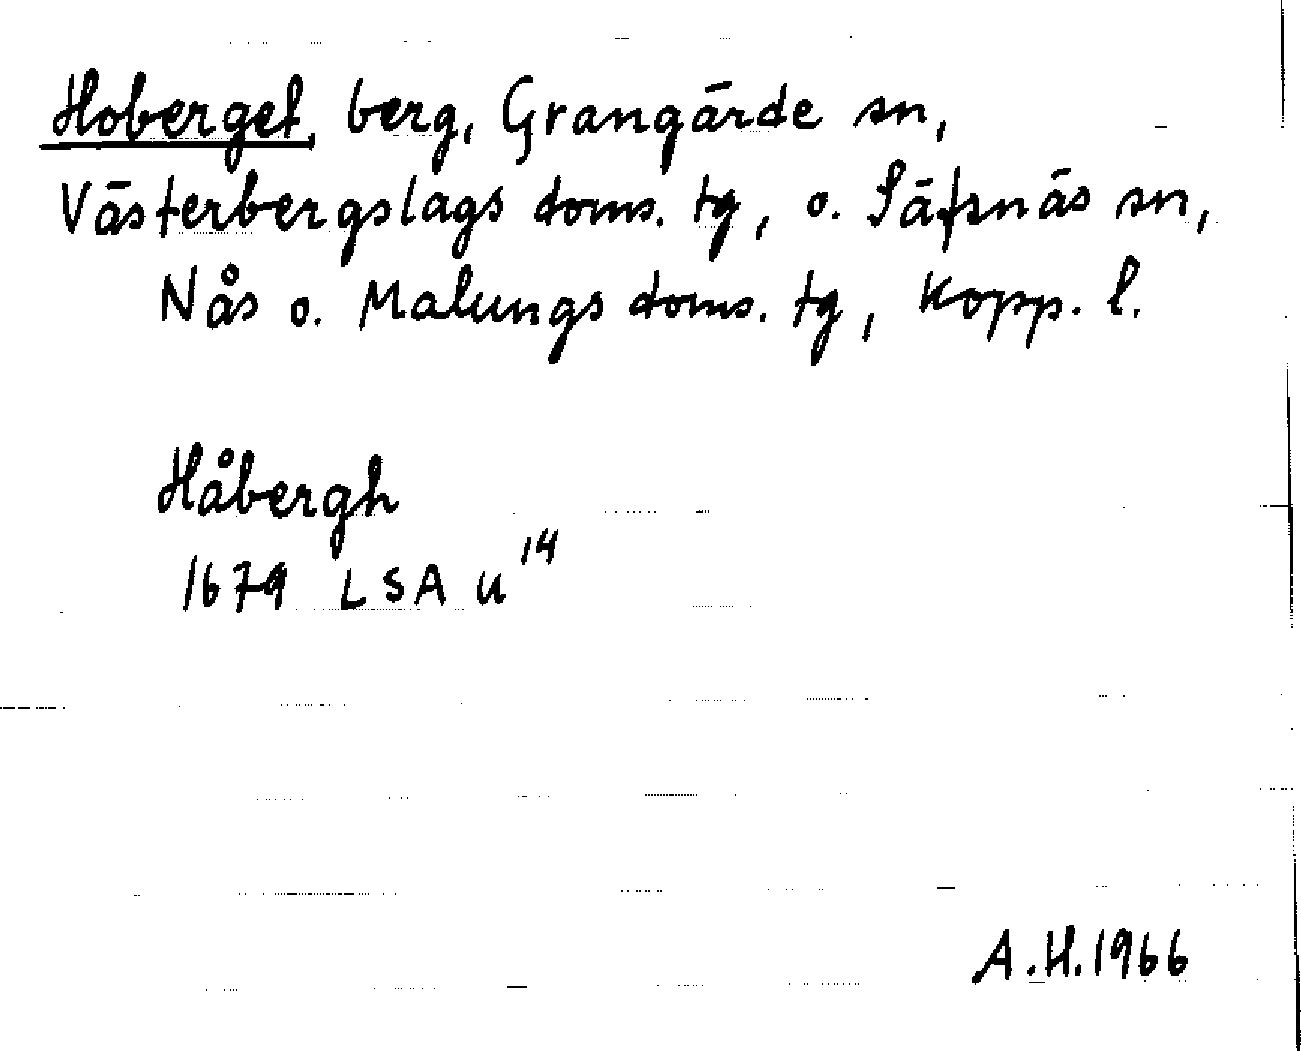 Hoberget, berg, Grangärde sn,
Västerbergslags doms. tg, o. Säfsnäs sn,
Nås o. Malungs doms. tg, Kopp. l.
Håbergh
1679 LSA U¹⁴
A.H. 1966